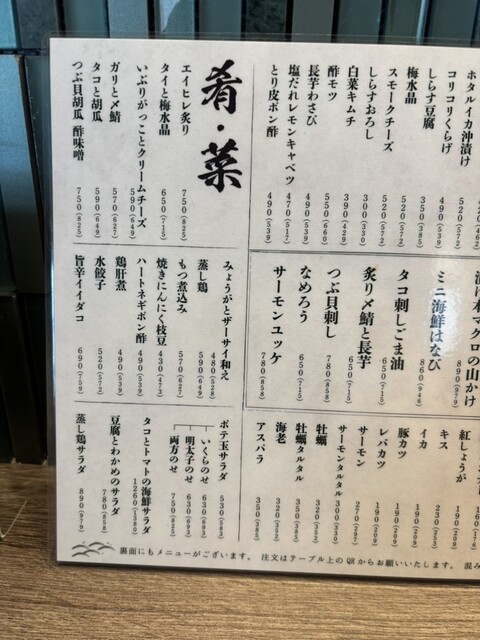 ホタルイカ沖漬け
コリコリくらげ 520(572)
しらす豆腐 490(539)
梅水晶 350(385)
スモークチーズ 520(572)
しらすおろし 520(572)
白菜キムチ 300(330)
酢モツ 390(429)
長芋わさび 550(605)
塩だれレモンキャベツ 490(539)
とり皮ポン酢 470(517)
490(539)
肴・菜
エイヒレ炙り 750(825)
タイと梅水晶 650(715)
いぶりがっことクリームチーズ 590(649)
ガリと〆鯖 570(627)
タコと胡瓜 590(649)
つぶ貝胡瓜 酢味噌 750(825)
漬け本マグロの山かけ 890(979)
ミニ海鮮はなび 860(946)
タコ刺しごま油 650(715)
炙り〆鯖と長芋 650(715)
つぶ貝刺し 780(858)
なめろう 650(715)
サーモンユッケ 780(858)
みょうがとザーサイ和え 480(528)
蒸し鶏 590(649)
もつ煮込み 570(627)
焼きにんにく枝豆 430(473)
ハートネギポン酢 490(539)
鶏肝煮 490(539)
水餃子 520(572)
旨辛イイダコ 690(759)
紅しょうが 160
キス 230(253)
イカ 190(209)
豚カツ 190(209)
レバカツ 190(209)
サーモン 270(297)
サーモンタルタル 300(330)
牡蠣 320(352)
牡蠣タルタル 350(385)
海老 320(352)
アスパラ 350(385)
ポテ玉サラダ 530(583)
いくらのせ 630(693)
明太子のせ 630(693)
両方のせ 750(825)
タコとトマトの海鮮サラダ 1260(1386)
豆腐とわかめのサラダ 780(858)
蒸し鶏サラダ 890(979)
裏面にもメニューがございます。 注文はテーブル上のQRからお願いいたします。 混み